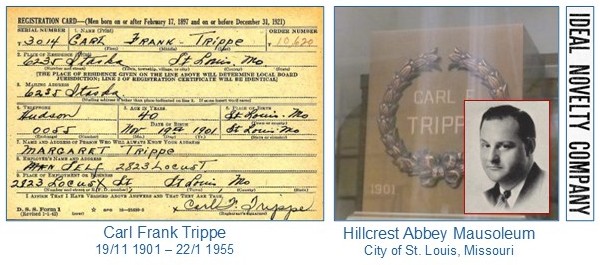 REGISTRATION CARD—(Men born on or after February 17, 1897 and on or before December 31, 1921)
SERIAL NUMBER 1. NAME (Print) ORDER NUMBER
3014 CARL FRANK TRIPPE 10620
(First) (Middle) (Last)
2. PLACE OF RESIDENCE (Print)
6235 Itaska St Louis Mo
(Number and street) (Town, township, village, or city) (County) (State)
[THE PLACE OF RESIDENCE GIVEN ON THE LINE ABOVE WILL DETERMINE LOCAL BOARD
JURISDICTION; LINE 2 OF REGISTRATION CERTIFICATE WILL BE IDENTICAL]
3. MAILING ADDRESS
6235 Itaska
[Mailing address if other than place indicated on line 2. If same insert word same]
4. TELEPHONE 5. AGE IN YEARS 6. PLACE OF BIRTH
Hudson 40 St Louis. Mo
DATE OF BIRTH
0055 Nov 19th 1901 St Louis. Mo
(Exchange) (Number) (Mo.) (Day) (Yr.) (State or country)
7. NAME AND ADDRESS OF PERSON WHO WILL ALWAYS KNOW YOUR ADDRESS
MARGARET TRIPPE
8. EMPLOYER'S NAME AND ADDRESS
2823 LOCUST
9. PLACE OF EMPLOYMENT OR BUSINESS
2823 Locust St St Louis Mo
(Number and street or R. F. D. number) (Town) (County) (State)
I AFFIRM THAT I HAVE VERIFIED ABOVE ANSWERS AND THAT THEY ARE TRUE.
D. S. S. Form 1
(Revised 1-1-42) (over) Carl F. Trippe
(Registrant's signature)
CARL F.
TRIPPE
1901
IDEAL NOVELTY COMPANY
Carl Frank Trippe
19/11 1901 – 22/1 1955
Hillcrest Abbey Mausoleum
City of St. Louis, Missouri